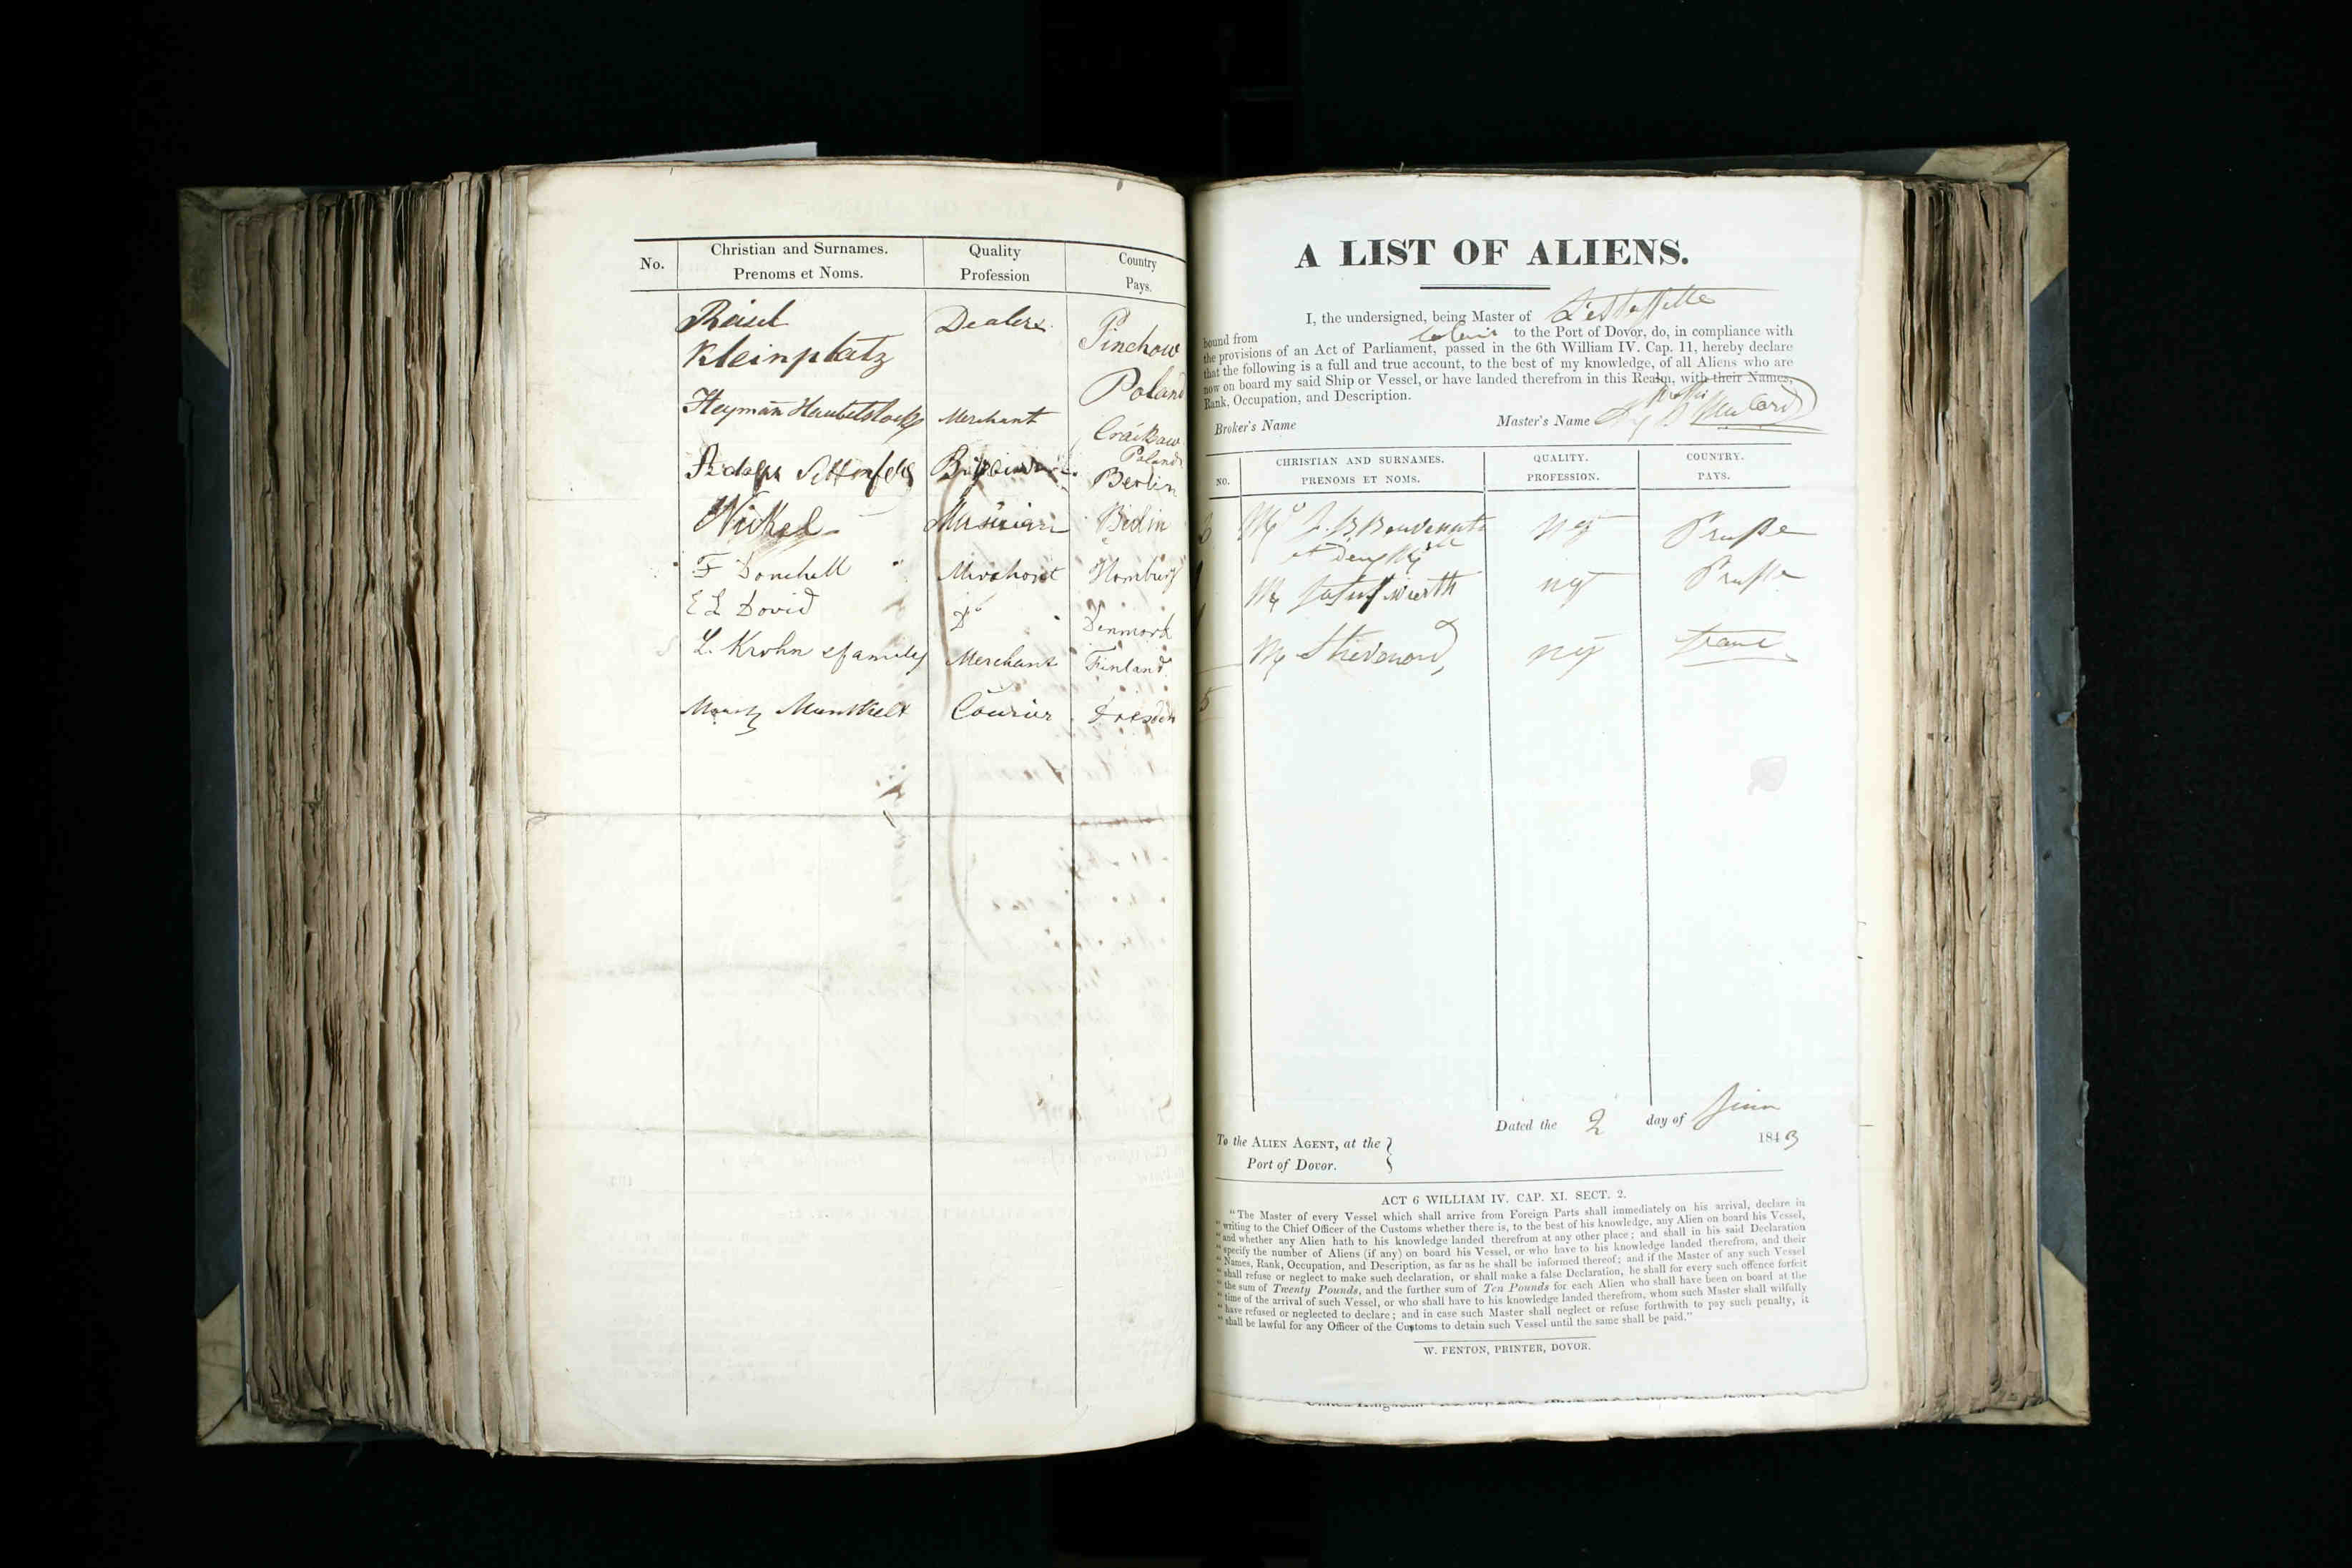 No.
Christian and Surnames.
Prenoms et Noms.
Quality
Profession
Country
Pays.
Kleinplatz
Dealer
Pinchow
Poland
Heyman
Merchant
Poland
Berlin
Nickel
Musician
Berlin
F
E L David
Do
Denmark
L. Krohn & family
Merchant
Finland
Courier
Dresden
A LIST OF ALIENS.
I, the undersigned, being Master of
bound from to the Port of Dovor, do, in compliance with
the provisions of an Act of Parliament, passed in the 6th William IV. Cap. 11, hereby declare
that the following is a full and true account, to the best of my knowledge, of all Aliens who are
now on board my said Ship or Vessel, or have landed therefrom in this Realm, with their Names,
Rank, Occupation, and Description.
Broker's Name
Master's Name
NO.
CHRISTIAN AND SURNAMES.
PRENOMS ET NOMS.
QUALITY.
PROFESSION.
COUNTRY.
PAYS.
3
ngt
Prusse
ngt
Prusse
ngt
5
Dated the 2 day of
1843
To the ALIEN AGENT, at the
Port of Dovor.
ACT 6 WILLIAM IV. CAP. XI. SECT. 2.
"The Master of every Vessel which shall arrive from Foreign Parts shall immediately on his arrival, declare in
"writing to the Chief Officer of the Customs whether there is, to the best of his knowledge, any Alien on board his Vessel,
"and whether any Alien hath to his knowledge landed therefrom at any other place; and shall in his said Declaration
"specify the number of Aliens (if any) on board his Vessel, or who have to his knowledge landed therefrom, and their
"Names, Rank, Occupation, and Description, as far as he shall be informed thereof; and if the Master of any such Vessel
"shall refuse or neglect to make such declaration, or shall make a false Declaration, he shall for every such offence forfeit
"the sum of Twenty Pounds, and the further sum of Ten Pounds for each Alien who shall have been on board at the
"time of the arrival of such Vessel, or who shall have to his knowledge landed therefrom, whom such Master shall wilfully
"have refused or neglected to declare; and in case such Master shall neglect or refuse forthwith to pay such penalty, it
"shall be lawful for any Officer of the Customs to detain such Vessel until the same shall be paid."
W. FENTON, PRINTER, DOVOR.